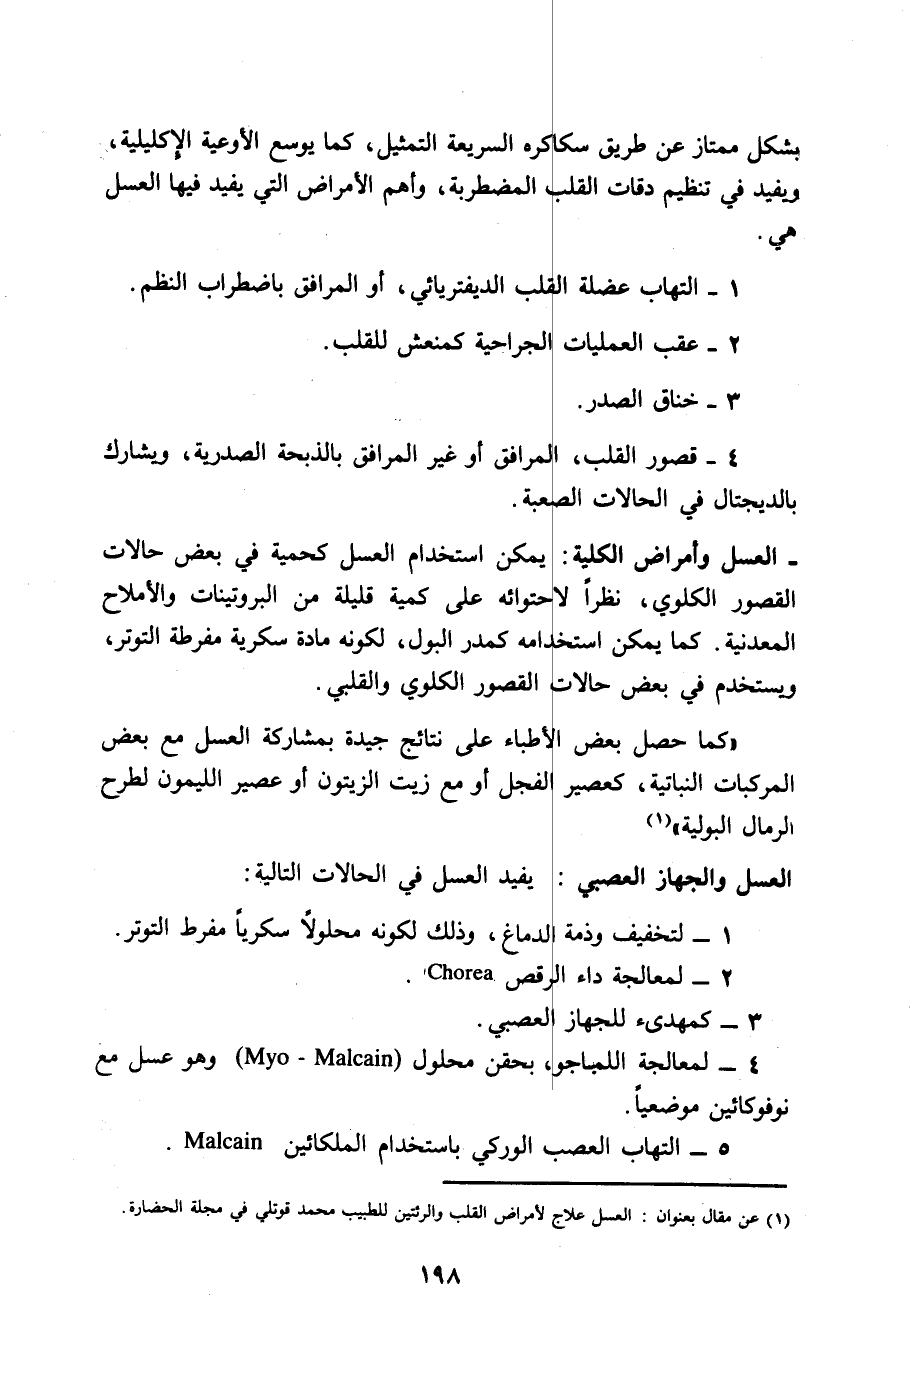 بشكل ممتاز عن طريق سكاكره السريعة التمثيل، كما يوسع الأوعية الإكليلية،
ويفيد في تنظيم دقات القلب المضطربة، وأهم الأمراض التي يفيد فيها العسل
هي.
١ ـ التهاب عضلة القلب الديفتريائي، أو المرافق باضطراب النظم.
٢ ـ عقب العمليات الجراحية كمنعش للقلب.
٣ ـ خناق الصدر.
٤ ـ قصور القلب، المرافق أو غير المرافق بالذبحة الصدرية، ويشارك
بالديجتال في الحالات الصعبة.
ـ العسل وأمراض الكلية: يمكن استخدام العسل كحمية في بعض حالات
القصور الكلوي، نظراً لاحتوائه على كمية قليلة من البروتينات والأملاح
المعدنية. كما يمكن استخدامه كمدر البول، لكونه مادة سكرية مفرطة التوتر،
ويستخدم في بعض حالات القصور الكلوي والقلبي.
«كما حصل بعض الأطباء على نتائج جيدة بمشاركة العسل مع بعض
المركبات النباتية، كعصير الفجل أو مع زيت الزيتون أو عصير الليمون لطرح
الرمال البولية»(١)
العسل والجهاز العصبي : يفيد العسل في الحالات التالية:
١ ــ لتخفيف وذمة الدماغ، وذلك لكونه محلولاً سكرياً مفرط التوتر.
٢ ــ لمعالجة داء الرقص Chorea .
٣ ــ كمهدىء للجهاز العصبي.
٤ ــ لمعالجة اللمباجو، بحقن محلول (Myo - Malcain) وهو عسل مع
نوفوكائين موضعياً.
٥ ــ التهاب العصب الوركي باستخدام الملكائين Malcain .
(١) عن مقال بعنوان : العسل علاج لأمراض القلب والرئتين للطبيب محمد قوتلي في مجلة الحضارة.
١٩٨